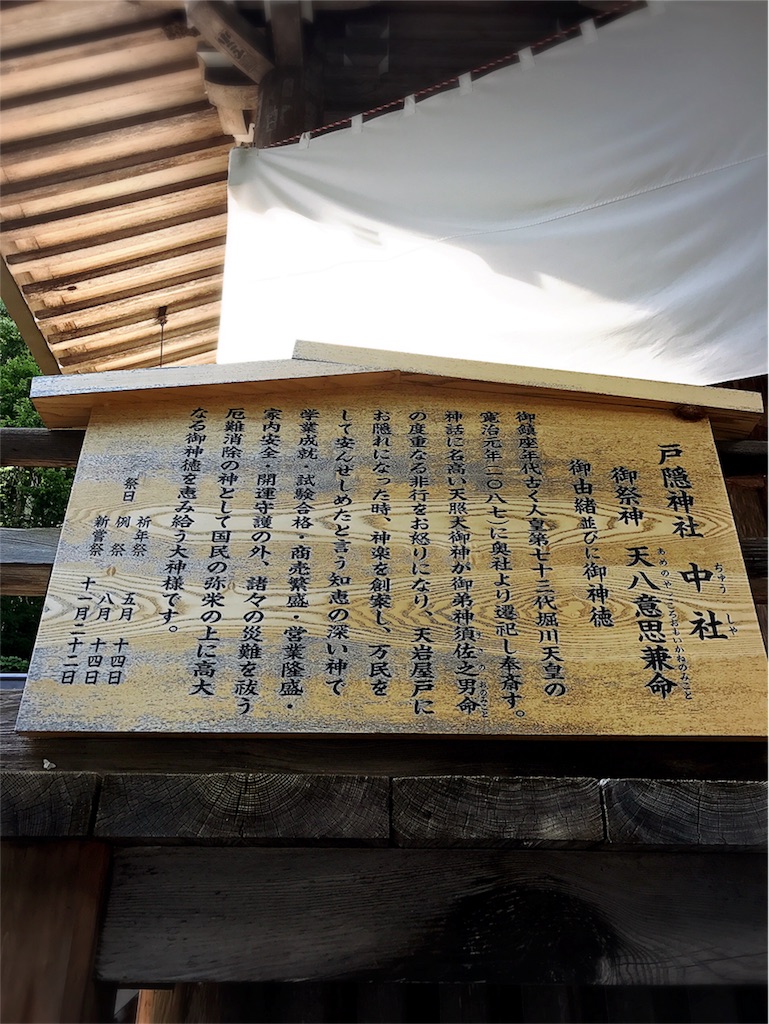 戸隠神社 中社
ちゅう しゃ
御祭神 天八意思兼命
あめのやごころおもいかねのみこと
御由緒並びに御神徳
御鎮座年代古く人皇第七十三代堀川天皇の
寛治元年(一〇八七)に奥社より遷祀し奉斎す。
神話に名高い天照大御神が御弟神須佐之男命
すさのおのみこと
の度重なる非行をお怒りになり、天岩屋戸に
お隠れになった時、神楽を創案し、万民を
して安んぜしめたと言う知恵の深い神で
学業成就・試験合格・商売繁盛・営業隆盛・
家内安全・開運守護の外、諸々の災難を祓う
厄難消除の神として国民の弥栄の上に高大
なる御神徳を恵み給う大神様です。
祈年祭 五月 十四日
祭日 例祭 八月 十四日
新嘗祭 十一月二十二日